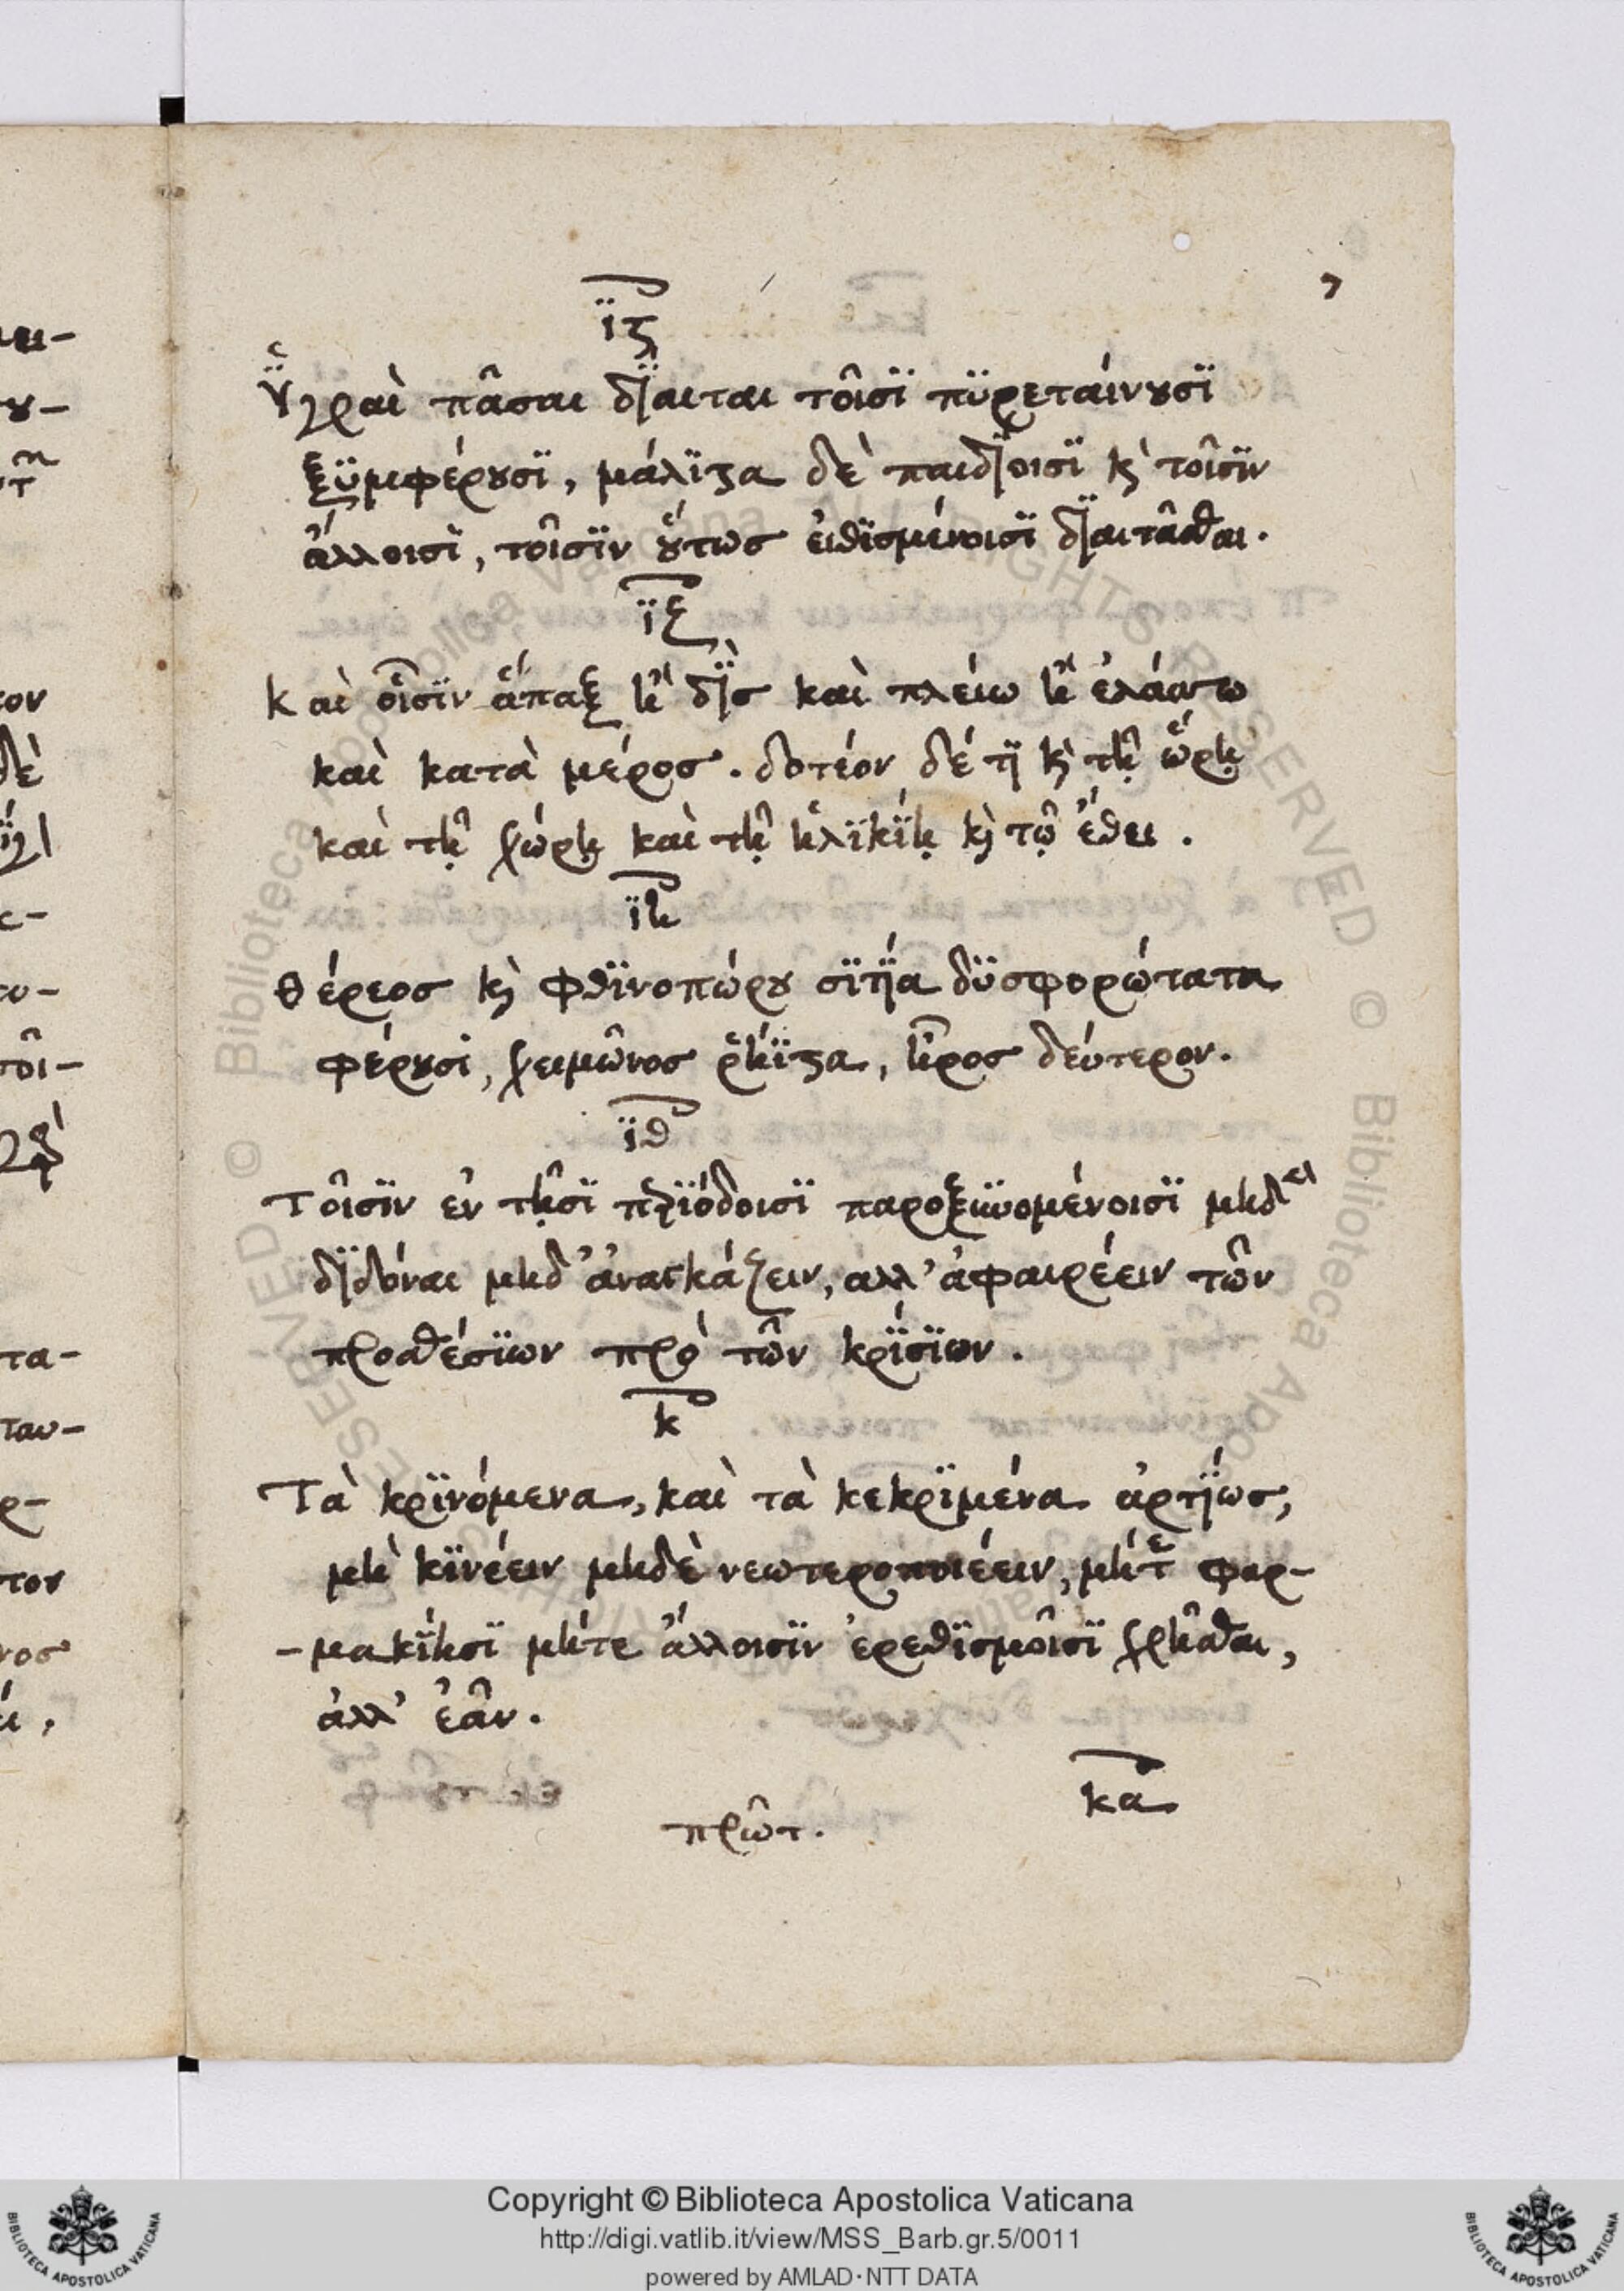 7
ις
Ὑγραὶ πᾶσαι δίαιται τοῖσι πυρεταίνουσι
ξυμφέρουσι, μάλιστα δὲ παιδίοισι κὶ τοῖσιν
ἄλλοισι, τοῖσιν οὕτως εἰθισμένοισι διαιτᾶσθαι.
ιζ
Καὶ οἷσιν ἅπαξ ἢ δὶς καὶ πλείω ἢ ἐλάσσω
καὶ κατὰ μέρος. δοτέον δέ τι κὶ τῇ ὥρῃ
καὶ τῇ χώρῃ καὶ τῇ ἡλικίῃ κὶ τῷ ἔθει.
ιη
Θέρεος κὶ φθινοπώρου σιτία δυσφορώτατα
φέρουσι, χειμῶνος ῥήϊστα, ἦρος δεύτερον.
ιθ
Τοῖσιν ἐν τῇσι περιόδοισι παροξυνομένοισι μηδὲν
διδόναι μηδ' ἀναγκάζειν, ἀλλ' ἀφαιρέειν τῶν
προσθέσιων πρὸ τῶν κρίσιων.
κ
Τὰ κρινόμενα, καὶ τὰ κεκριμένα ἀρτίως,
μὴ κινέειν μηδὲ νεωτεροποιέειν, μήτε φαρ-
-μακίησι μήτε ἄλλοισιν ἐρεθισμοῖσι χρῆσθαι,
ἀλλ' ἐᾶν.
κα
πρῶτ.
Copyright © Biblioteca Apostolica Vaticana
http://digi.vatlib.it/view/MSS_Barb.gr.5/0011
powered by AMLAD·NTT DATA
BIBLIOTECA APOSTOLICA VATICANA
BIBLIOTECA APOSTOLICA VATICANA